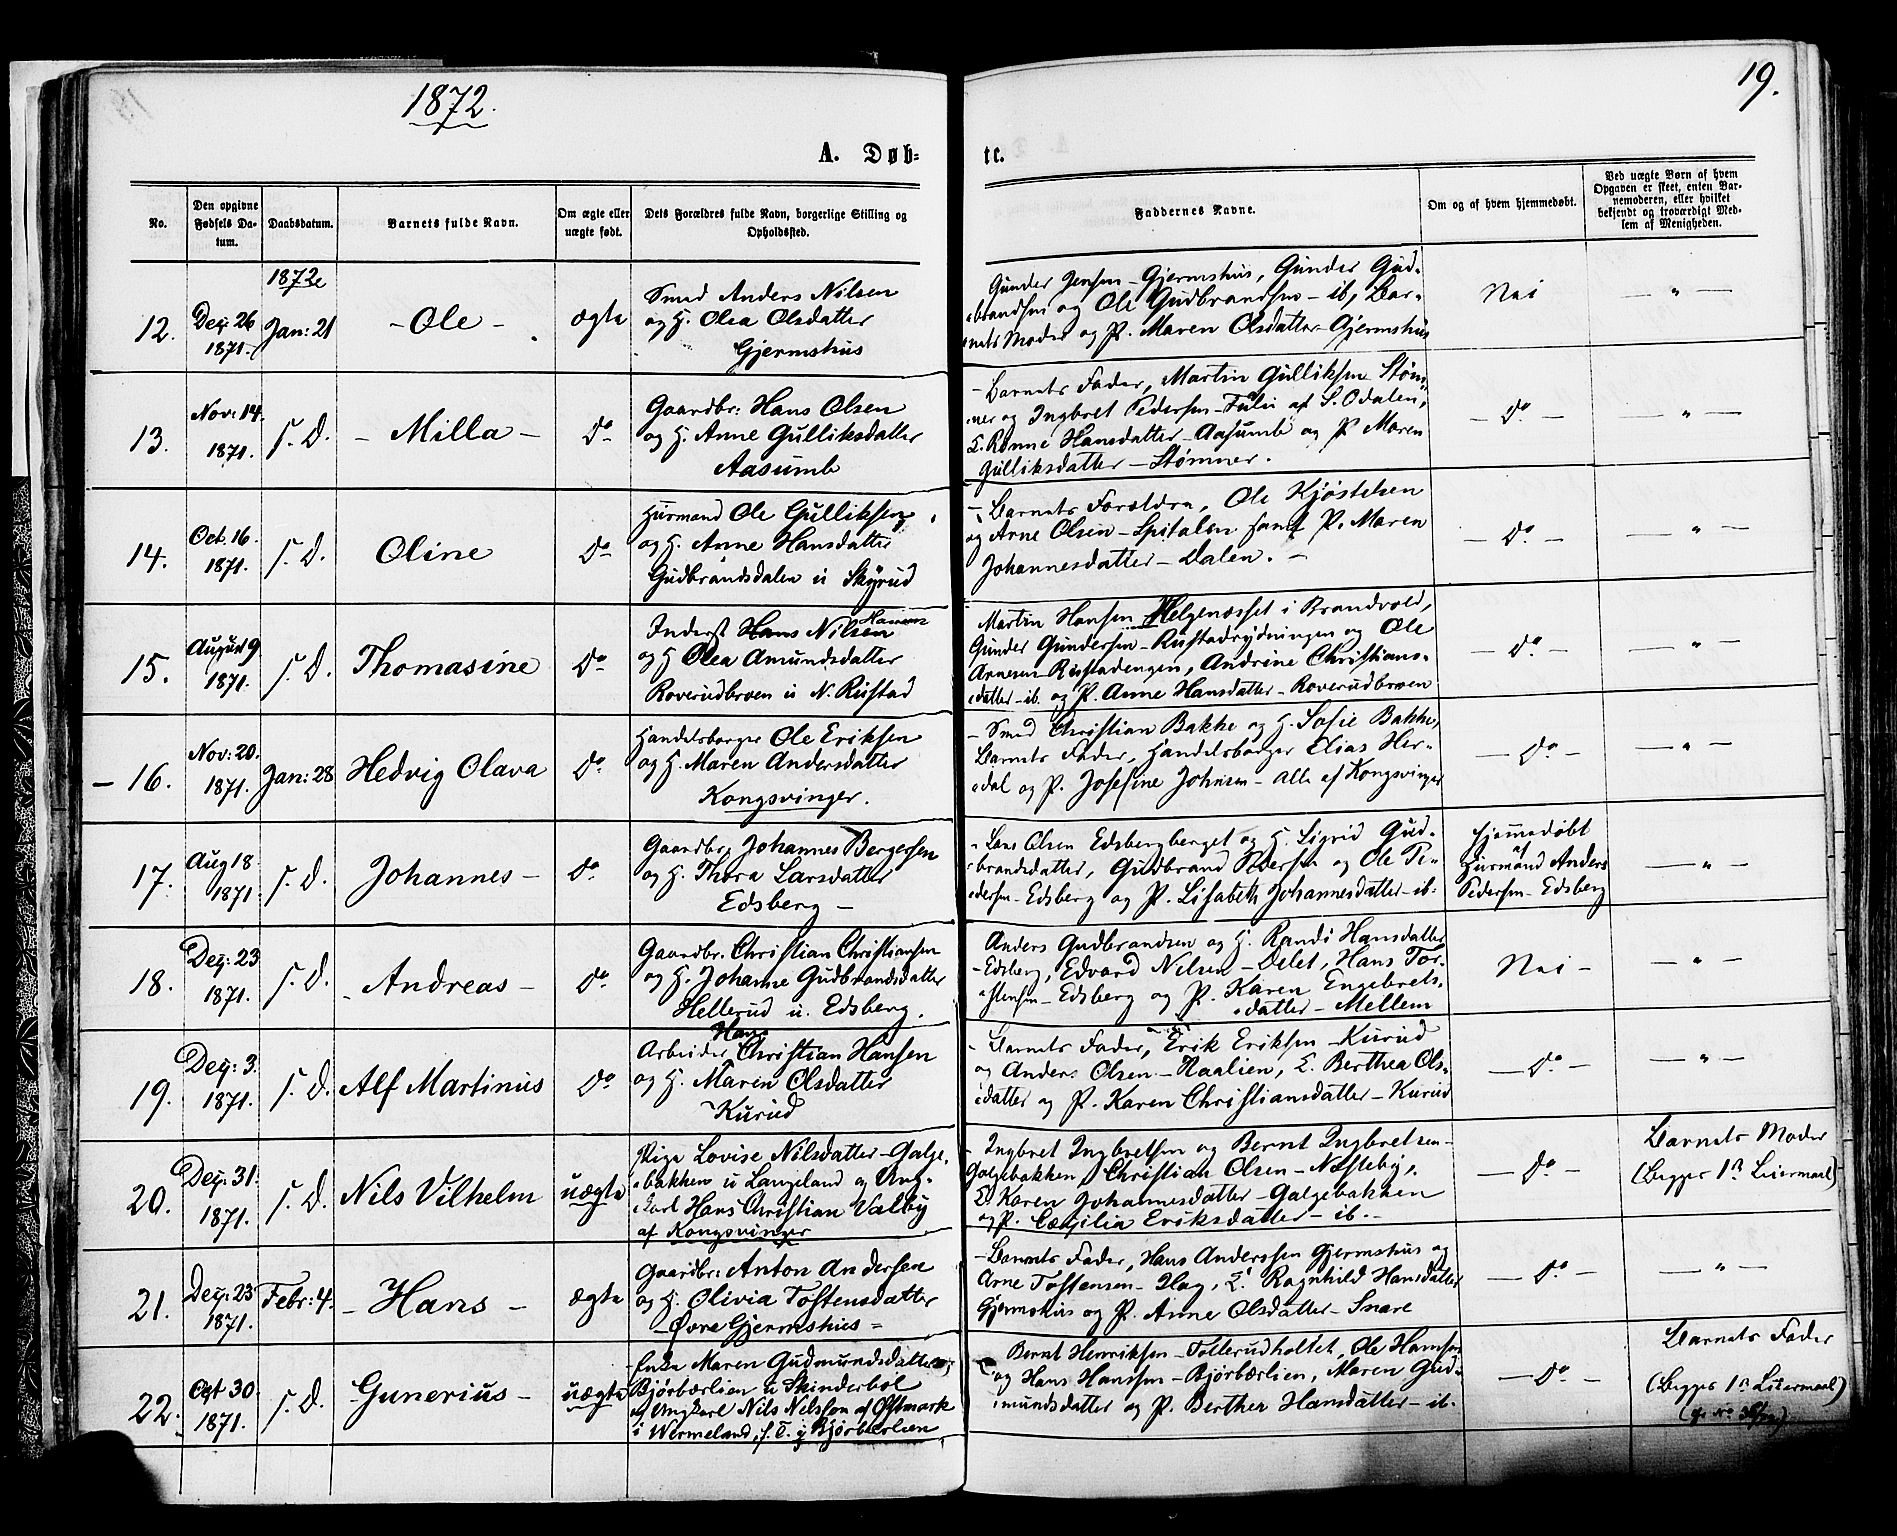 1872.
19.
A. Døb-
te.
No.
Den opgivne
Fødsels Da-
tum.
Daabsdatum.
Barnets fulde Navn.
Om ægte eller
uægte født.
Dets Forældres fulde Navn, borgerlige Stilling og
Opholdssted.
Faddernes Navne.
Om og af hvem hjemmedøbt.
Ved uægte Børn af hvem
Opgaven er skeet, enten Bar-
nemoderen, eller hvilket
bekjendt og troværdigt Med-
lem af Menigheden.
12.
Dec: 26
1871.
1872
Jan: 21
- Ole -
ægte
Smed Anders Nilsen
og H. Olea Olsdatter
Gjermshus
Gunder Jensen - Gjermshus, Gunder Gud-
brandsen og Ole Gudbrandsen - ib, Bar-
nets Moder og P. Maren Olsdatter - Gjermshus
Nei
— " —
13.
Nov: 14.
1871.
s. D.
- Milla -
Do
Gaardbr: Hans Olsen
og H. Anne Gulliksdatter
Aasumb
- Barnets Fader, Martin Gulliksen Støm-
ner og Ingbret Pedersen - Fuli af S. Odalen,
E. Ronne Hansdatter - Aasumb og P. Maren
Gulliksdatter - Stømner.
- Do -
— " —
14.
Oct. 16.
1871.
s. D.
Oline
Do
Husmand Ole Gulliksen
og H. Anne Hansdatter
Gudbrandsdalen u Skyrud
- Barnets Forældre, Ole Kjøstelsen
og Arne Olsen - Spitalen samt P. Maren
Johannesdatter - Dalen. -
- Do -
— " —
15.
August 9
1871.
s. D.
Thomasine
Do
Inderst Hans Nilsen Hansen
og H Olea Amundsdatter
Roverudbroen u N. Rustad
Martin Hansen Helgenæsset i Brandvold,
Gunder Gundersen - Rustadrydningen og Ole
Arnesen Rustadengen, Andrine Christians-
datter - ib. og P. Anne Hansdatter - Roverudbroen
- Do -
— " —
- 16.
Nov: 20.
1871.
Jan: 28
Hedvig Olava
Do
Handelsborger Ole Eriksen
og H. Maren Andersdatter
Kongsvinger.
- Smed Christian Bakke og H. Sofie Bakke,
Barnets Fader, Handelsborger Elias Her-
dal og P. Josefine Johnsen - alle af Kongsvinger
- Do -
— " —
17.
Aug 18
1871.
s. D.
Johannes -
Do
Gaardbr. Johannes Bergersen
og H. Thora Larsdatter
Edsberg -
Lars Olsen Edsbergberget og H. Sigrid Gud-
brandsdatter, Gudbrand Pedersen og Ole Pe-
dersen - Edsberg og P. Lisabeth Johannesdatter - ib:
Hjemmedøbt
af
Husmand Anders
Pedersen - Edsberg
— " —
18.
Dec: 23
1871.
s. D.
- Andreas -
Do
Gaardbr. Christian Christiansen
og H. Johanne Gudbrandsdatter
Hellerud u. Edsberg.
Anders Gudbrandsen og H. Randi Hansdatter
- Edsberg, Edvard Nilsen - Delet, Hans Tor-
stensen - Edsberg og P. Karen Engebrets-
datter - Mellem
Nei -
— " —
19.
Dec: 3.
1871.
s. D.
Alf Martinus
Do
Arbeider Hans Christian Hansen
og H. Maren Olsdatter
Kurud
- Barnets Fader, Erik Eriksen - Kurud
og Anders Olsen - Naalien, E. Berthea Ols-
datter og P. Karen Christiansdatter - Kurud
- Do -
— " —
20.
Dec: 31.
1871.
s. D.
Nils Vilhelm
uægte
Pige Lovise Nilsdatter - Galge-
bakken u Langeland og Ung-
karl Hans Christian Valby
af Kongsvinger
- Ingbret Ingbretsen og Bernt Ingbretsen -
Galgebakken, Christian Olsen - Næsteby,
E. Karen Johannesdatter - Galgebakken
og P. Cæcilia Eriksdatter - ib. -
- Do -
Barnets Moder
(Begges 1ste Leiermaal)
21.
Dec: 23
1871.
Febr: 4.
- Hans -
ægte
Gaardbr: Anton Andersen
og H. Olivia Tostensdatter
Øvre Gjermshus -
- Barnets Fader, Hans Anderssen Gjermshus og
Arne Tostensen - Hag, E. Ragnhild Hansdatter
Gjermshus og P. Anne Olsdatter - Snare
- Do -
— " —
22.
Oct 30
1871.
s. D.
Gunerius -
uægte
Enke Maren Gudmundsdatter,
Bjørbærlien u Skinderbøl
og Ungkarl Nils Nilsson af Østmark
i Wermeland, s. T. i Bjørbærlien
Bernt Henriksen - Tollerudholtet, Ole Hansen
og Hans Hanssen - Bjørbærlien, Maren Gud-
mundsdatter og P. Berthea Hansdatter - ib.
- Do -
Barnets Fader
(Begges 1ste Leiermaal)